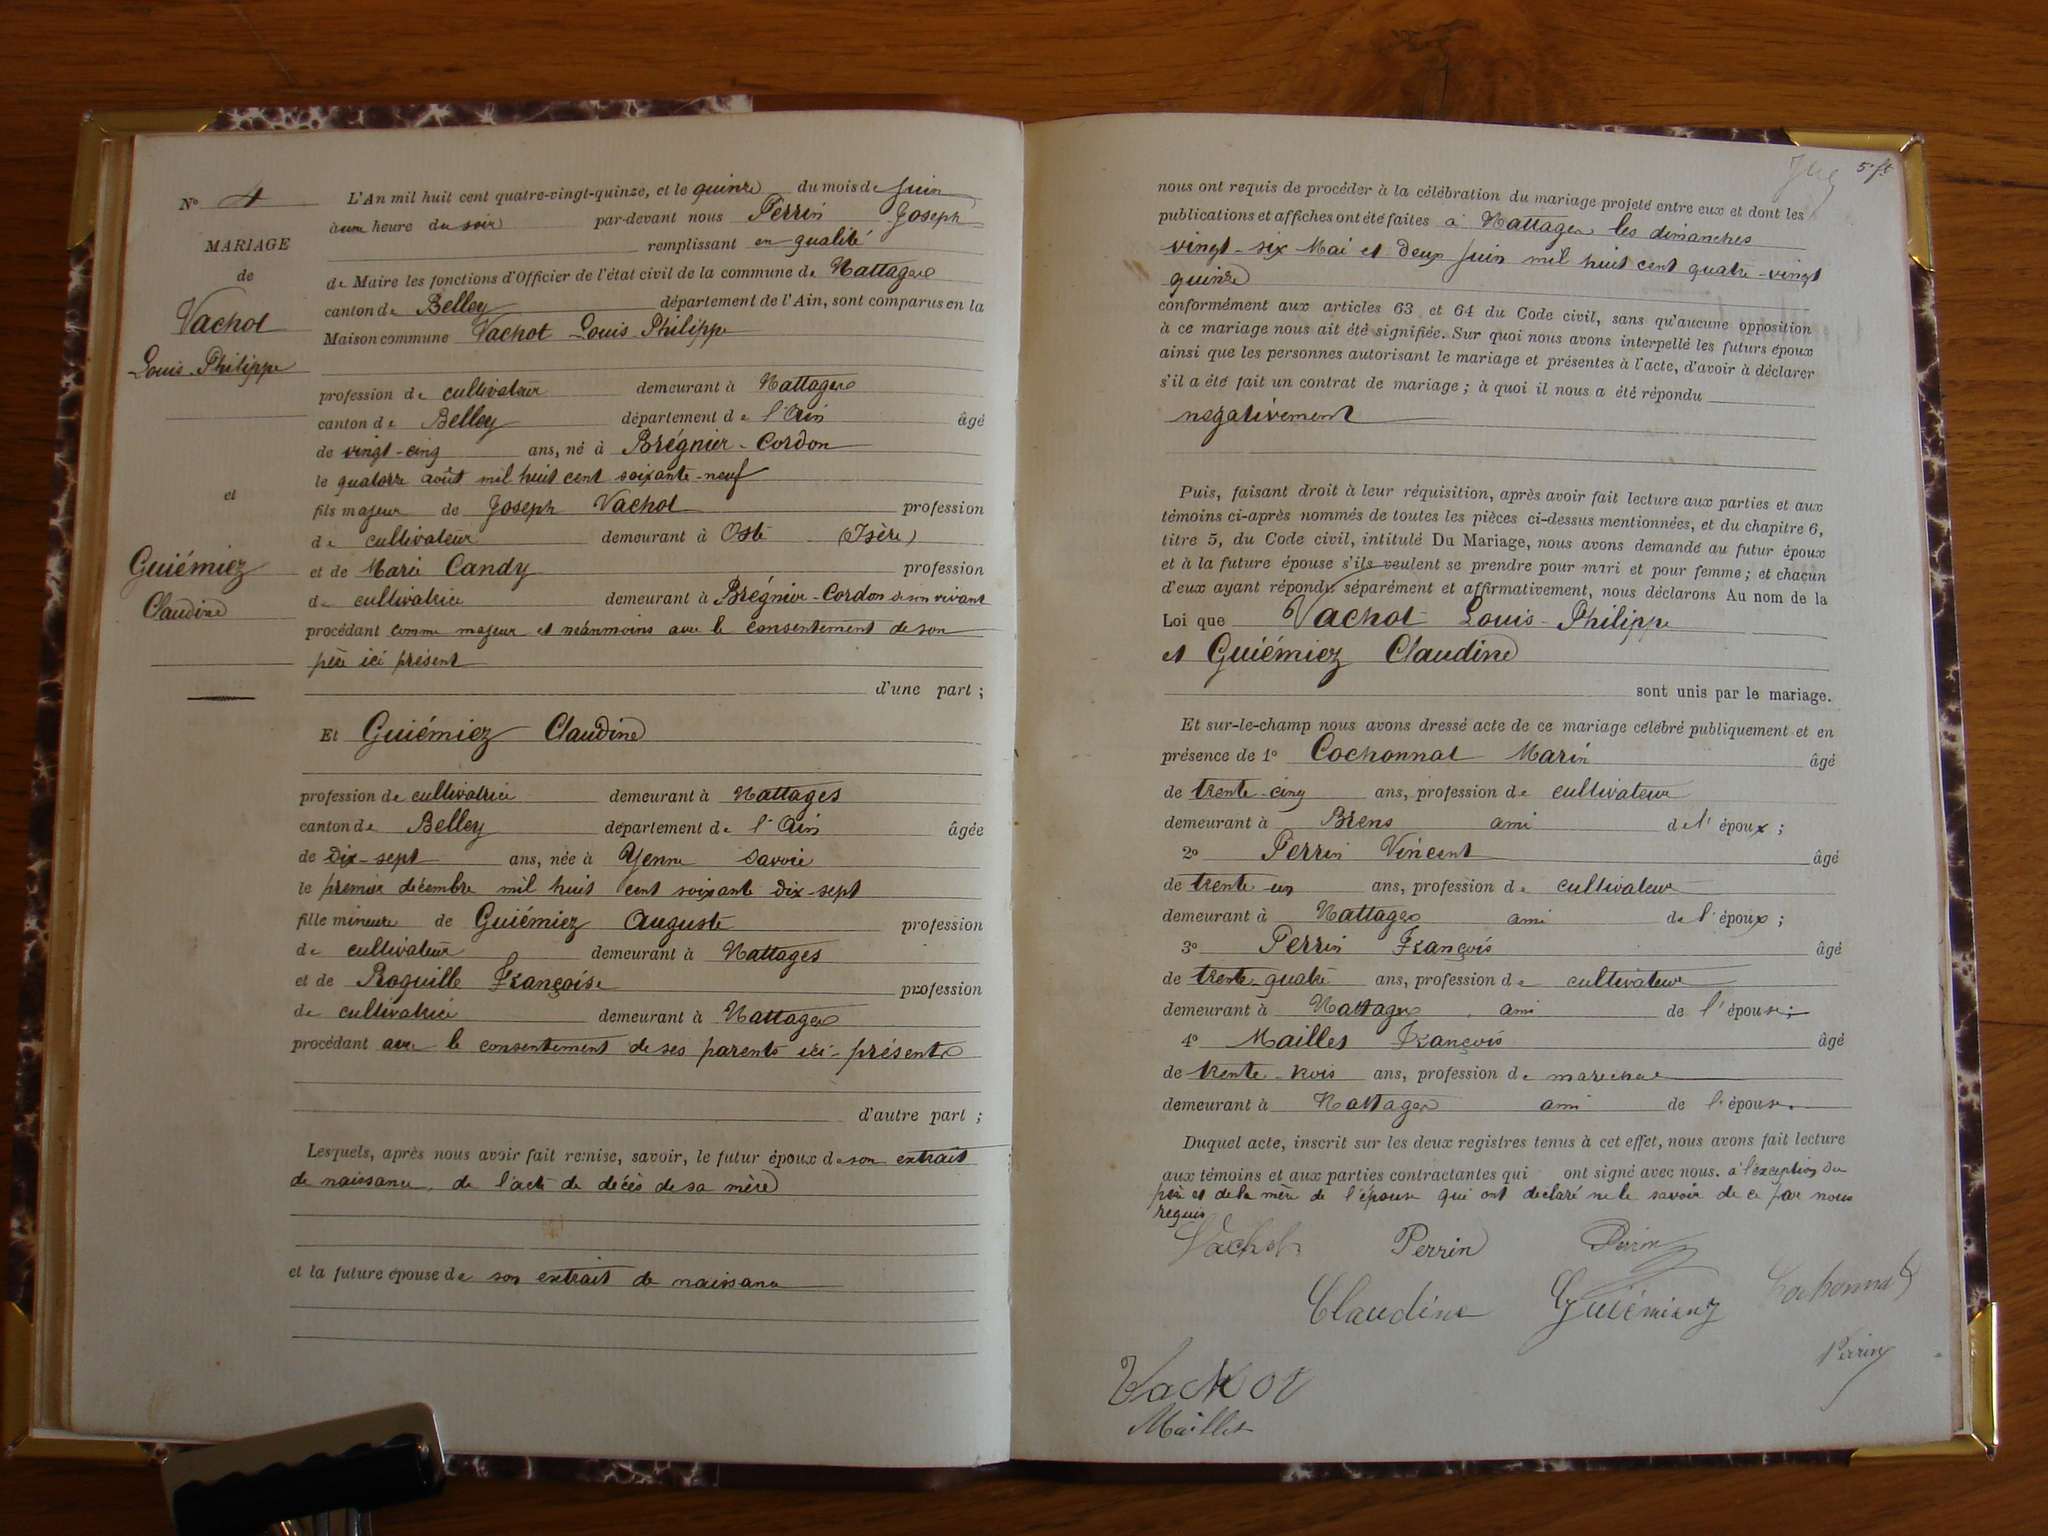 N° 4
MARIAGE
de
Vachot
Louis-Philippe
et
Guiémiez
Claudine
L'An mil huit cent quatre-vingt-quinze, et le quinze du mois de Juin
à une heure du soir par-devant nous Perrin Joseph
remplissant en qualité
de Maire les fonctions d'Officier de l'état civil de la commune de Nattages
canton de Belley département de l'Ain, sont comparus en la
Maison commune Vachot Louis Philippe
profession de cultivateur demeurant à Nattages
canton de Belley département de l'Ain âgé
de vingt-cinq ans, né à Brégnier-Cordon
le quatorze août mil huit cent soixante-neuf
fils majeur de Joseph Vachot profession
de cultivateur demeurant à Oste (Isère)
et de Marie Candy profession
de cultivatrice demeurant à Brégnier-Cordon de son vivant
procédant comme majeur et néanmoins avec le consentement de son
père ici présent
d'une part ;
Et Guiémiez Claudine
profession de cultivatrice demeurant à Nattages
canton de Belley département de l'Ain âgée
de Dix-sept ans, née à Yenne Savoie
le premier décembre mil huit cent soixante dix-sept
fille mineure de Guiémiez Auguste profession
de cultivateur demeurant à Nattages
et de Roguille Françoise profession
de cultivatrice demeurant à Nattages
procédant avec le consentement de ses parents ici-présents
d'autre part ;
Lesquels, après nous avoir fait remise, savoir, le futur époux de son extrait
de naissance, de l'acte de décès de sa mère
et la future épouse de son extrait de naissance
5 ft
nous ont requis de procéder à la célébration du mariage projeté entre eux et dont les
publications et affiches ont été faites à Nattages les dimanches
vingt-six Mai et Deux Juin mil huit cent quatre-vingt
quinze
conformément aux articles 63 et 64 du Code civil, sans qu'aucune opposition
à ce mariage nous ait été signifiée. Sur quoi nous avons interpellé les futurs époux
ainsi que les personnes autorisant le mariage et présentes à l'acte, d'avoir à déclarer
s'il a été fait un contrat de mariage ; à quoi il nous a été répondu
négativement
Puis, faisant droit à leur réquisition, après avoir fait lecture aux parties et aux
témoins ci-après nommés de toutes les pièces ci-dessus mentionnées, et du chapitre 6,
titre 5, du Code civil, intitulé Du Mariage, nous avons demandé au futur époux
et à la future épouse s'ils veulent se prendre pour mari et pour femme ; et chacun
d'eux ayant répondu séparément et affirmativement, nous déclarons Au nom de la
Loi que Vachot Louis-Philippe
et Guiémiez Claudine
sont unis par le mariage.
Et sur-le-champ nous avons dressé acte de ce mariage célébré publiquement et en
présence de 1° Cochonnat Marin âgé
de trente-cinq ans, profession de cultivateur
demeurant à Brens ami de l'époux ;
2° Perrin Vincent âgé
de trente un ans, profession de cultivateur
demeurant à Nattages ami de l'époux ;
3° Perrin François âgé
de trente-quatre ans, profession de cultivateur
demeurant à Nattages ami de l'épouse ;
4° Maillet François âgé
de trente-trois ans, profession de marechal
demeurant à Nattages ami de l'épouse.
Duquel acte, inscrit sur les deux registres tenus à cet effet, nous avons fait lecture
aux témoins et aux parties contractantes qui ont signé avec nous. à l'exception du
père et de la mère de l'épouse qui ont déclaré ne le savoir de ce par nous
requis
Vachot Perrin Perrin
Claudine Guiémiez Cochonnat
Perrin
Vachot
Maillet